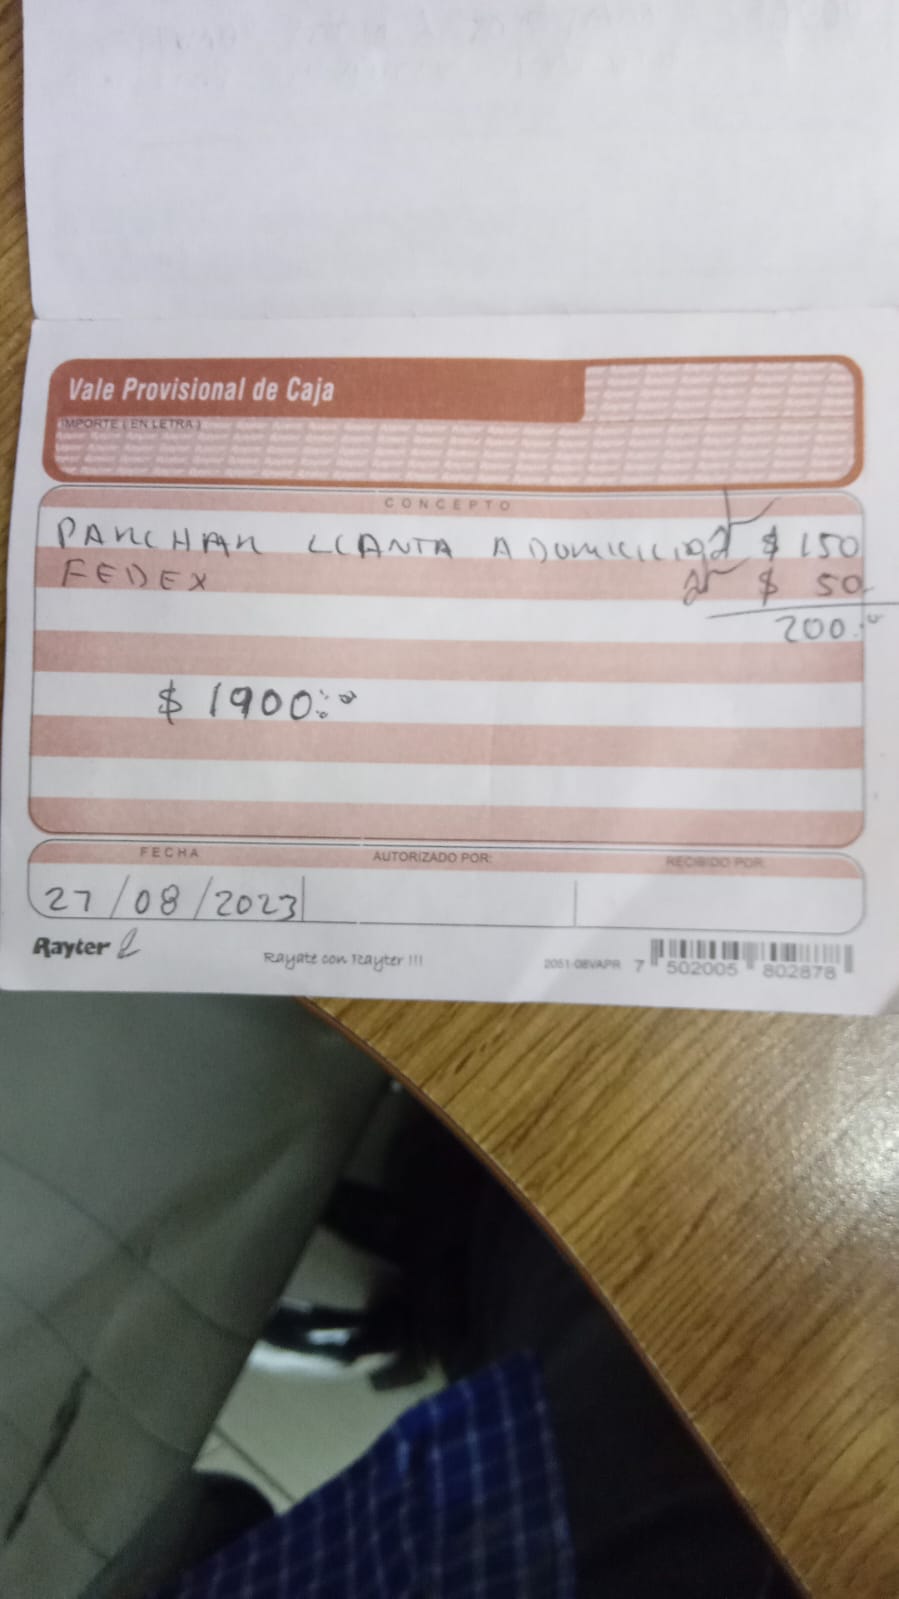 Vale Provisional de Caja
IMPORTE ( EN LETRA )
CONCEPTO
PANCHAR LLANTA A DOMICILIO $ 150
FEDEX $ 50
200.
$ 1900
FECHA AUTORIZADO POR: RECIBIDO POR:
27/08/2023
Rayter
Rayate con Rayter !!!
2051-08VAPR 7 502005 802878